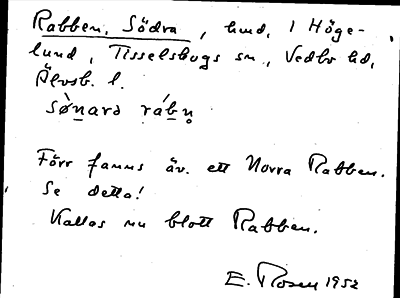 Rabben, Södra, hmd. i Höge-
lund, Tisselskogs sn., Vedbo hd,
Älvsb. l.
sø̀narə rábn̥
Förr fanns äv. ett Norra Rabben.
Se detta!
Kallas nu blott Rabben.
E. Rosen 1952